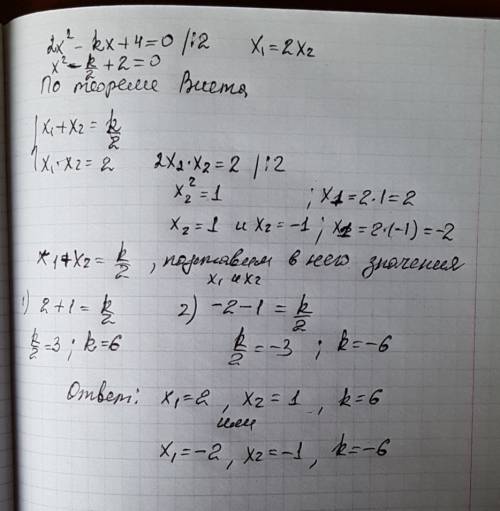 2x² - kx + 4 = 0 /:2 x₁ = 2x₂
x² - k/2 + 2 = 0
По теореме Виета
{ x₁ + x₂ = k/2
x₁ · x₂ = 2 2x₂ · x₂ = 2 /:2
x₂² = 1 ; x1 = 2·1 = 2
x₂ = 1 и x₂ = -1 ; x1 = 2·(-1) = -2
x₁ + x₂ = k/2 , подставим в него значения
x₁ и x₂
1) 2 + 1 = k/2 2) -2 - 1 = k/2
k/2 = 3 ; k = 6 k/2 = -3 ; k = -6
Ответ: x₁ = 2 , x₂ = 1 , k = 6
или
x₁ = -2 , x₂ = -1 , k = -6